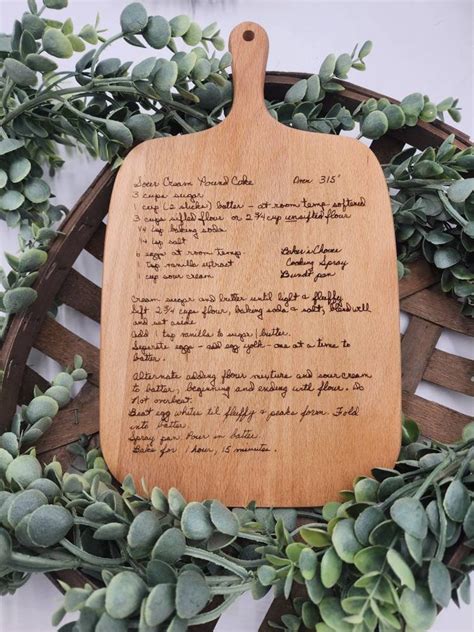 Sour Cream Pound Cake Oven 315°
3 cups sugar
1 cup (2 sticks) butter - at room temp-softened
3 cups sifted flour or 2 3/4 cup unsifted flour
1/4 tsp baking soda
1/4 tsp salt
6 eggs at room temp Baker's Choice
1 tsp vanilla extract Cooking Spray
1 cup sour cream Bundt pan
Cream sugar and butter until light & fluffy
Sift 2 3/4 cups flour, baking soda & salt, blend well
and set aside
Add 1 tsp vanilla to sugar/butter.
Separate eggs - add egg yolk - one at a time to
batter.
Alternate adding flour mixture and sour cream
to batter, beginning and ending with flour. Do
Not overbeat.
Beat egg whites til fluffy & peaks form. Fold
into batter
Spray pan Pour in batter.
Bake for 1 hour, 15 minutes.